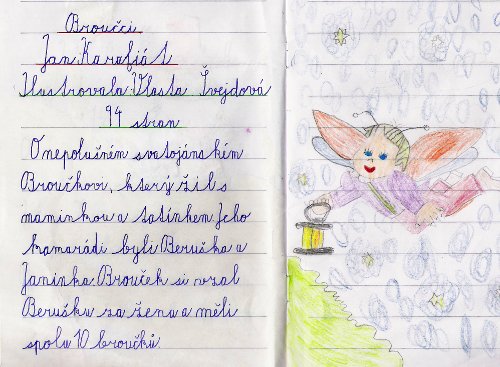 Broučci
Jan Karafiát
Ilustrovala: Vlasta Švejdová
94 stran
O neposlušném svatojánském
Broučkovi, který žil s
maminkou a tatínkem. Jeho
kamarádi byli Beruška a
Janinka. Brouček si vzal
Berušku za ženu a měli
spolu 10 broučků.